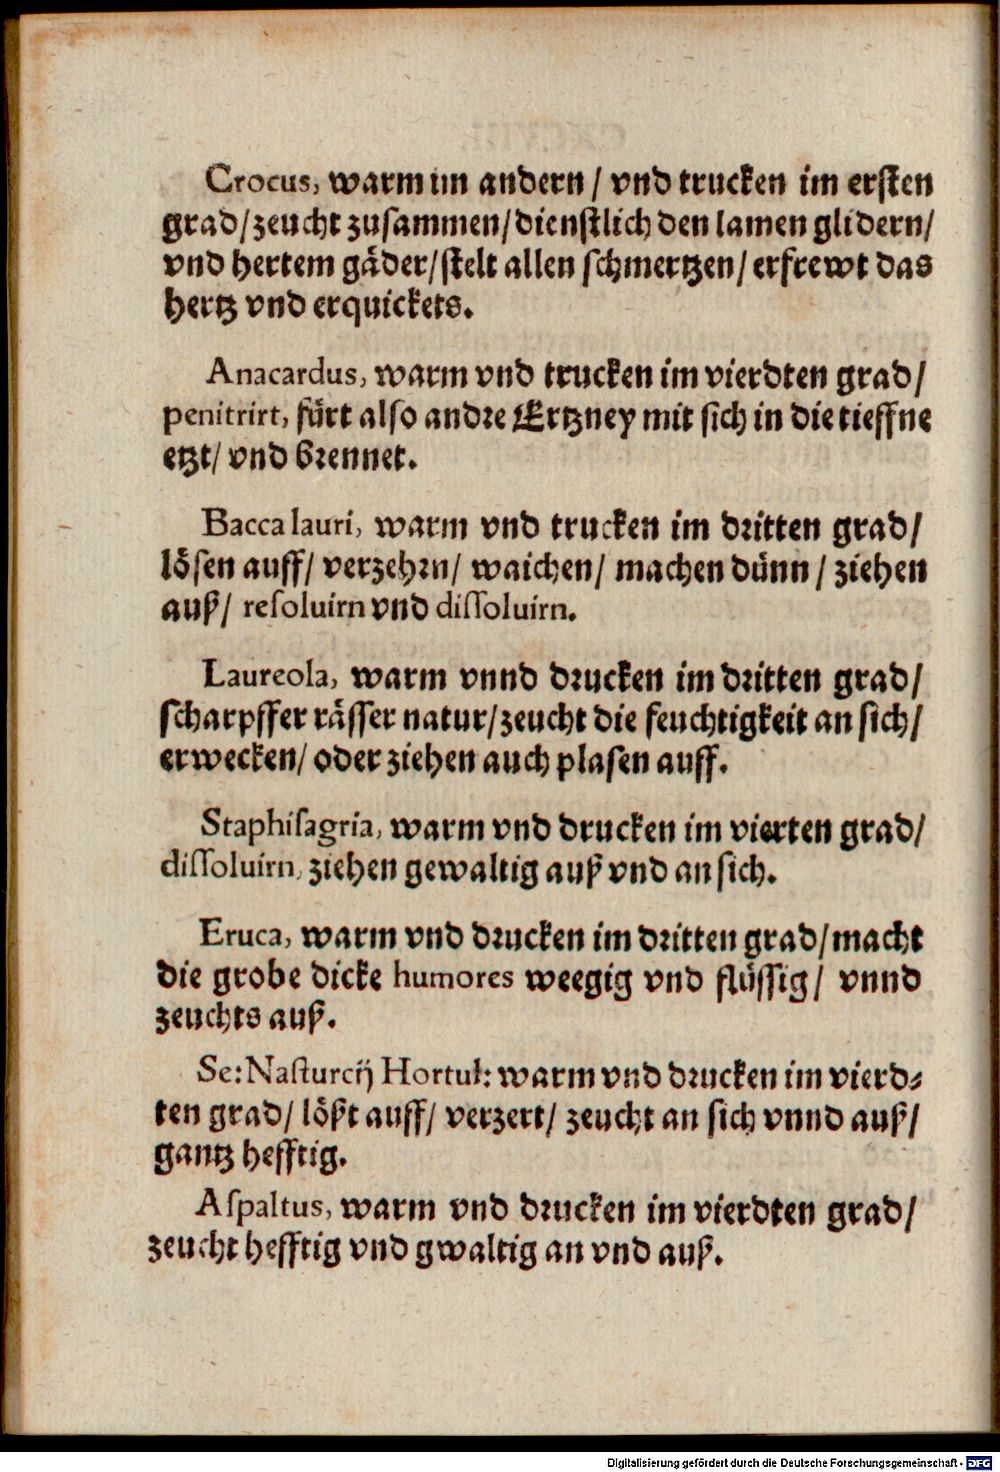 Crocus, warm im andern / vnd trucken im ersten
grad/ zeucht zusammen/ dienstlich den lamen glidern/
vnd hertem gåder/ stelt allen schmertzen/ erfrewt das
hertz vnd erquickets.
Anacardus, warm vnd trucken im vierdten grad/
penitrirt, fürt also andre Ertzney mit sich in die tieffne
etzt/ vnd brennet.
Bacca lauri, warm vnd trucken im dritten grad/
lösen auff/ verzehrn/ waichen/ machen dünn / ziehen
auß/ resoluirn vnd dissoluirn.
Laureola, warm vnnd drucken im dritten grad/
scharpffer rässer natur/ zeucht die feuchtigkeit an sich/
erwecken/ oder ziehen auch plasen auff.
Staphisagria, warm vnd drucken im vierten grad/
dissoluirn, ziehen gewaltig auß vnd an sich.
Eruca, warm vnd drucken im dritten grad/ macht
die grobe dicke humores weegig vnd flüssig/ vnnd
zeuchts auß.
Se: Nasturcij Hortul: warm vnd drucken im vierd⸗
ten grad/ lößt auff/ verzert/ zeucht an sich vnnd auß/
gantz hefftig.
Aspaltus, warm vnd drucken im vierdten grad/
zeucht hefftig vnd gwaltig an vnd auß.
Digitalisierung gefördert durch die Deutsche Forschungsgemeinschaft - DFG